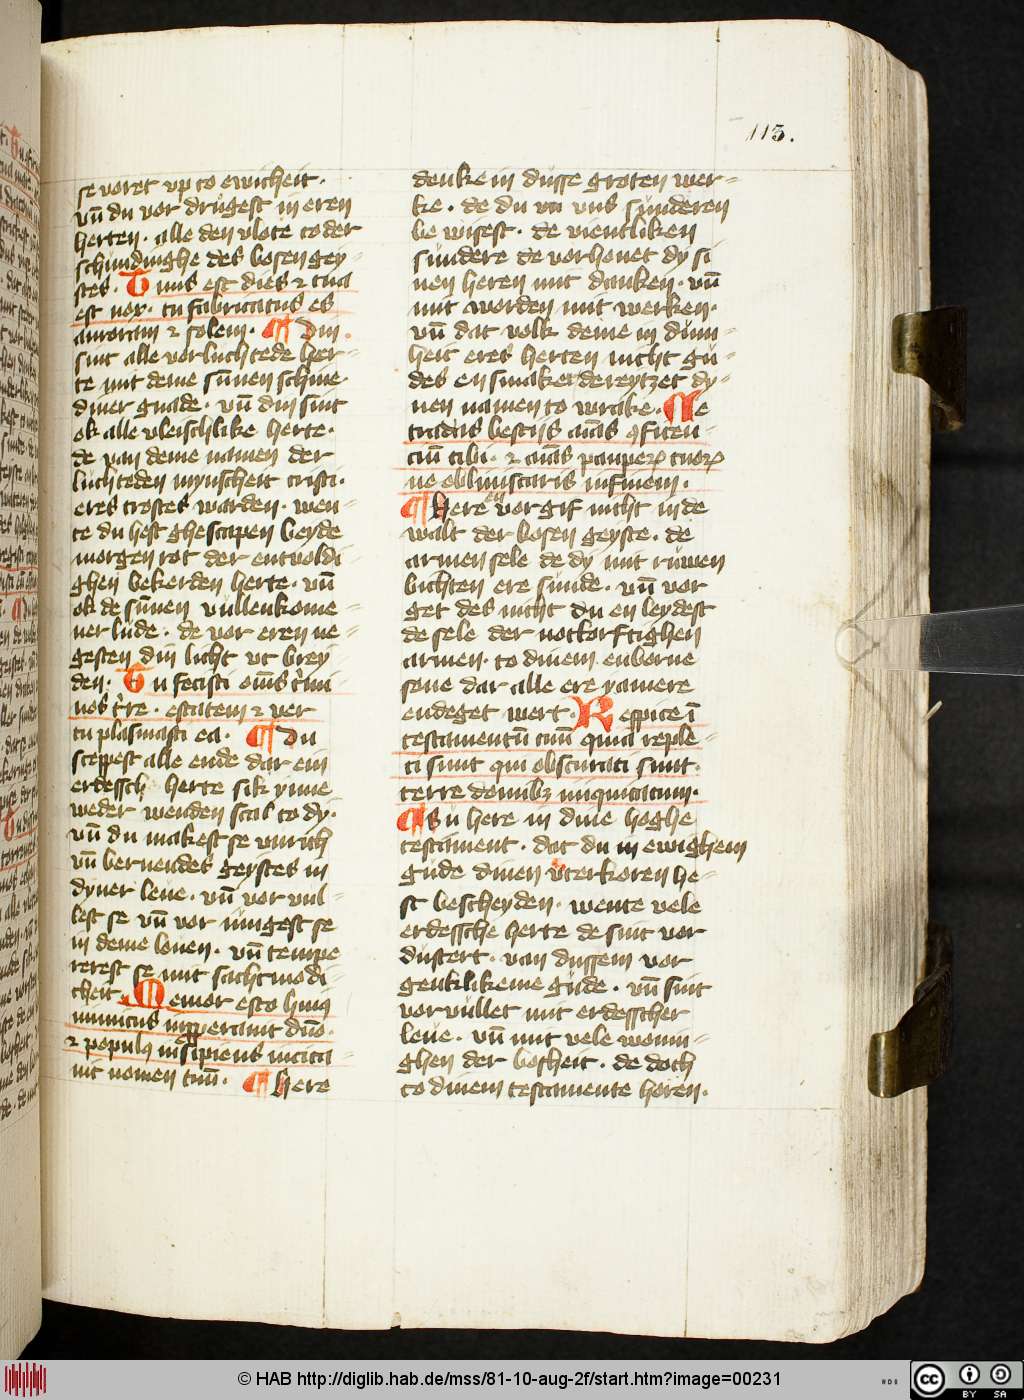 113.
se voret vp to ewicheit ·
vn̄ du vor drůgest in eren
herten · alle den vlote to der
schindinghe des bosen gey-
stes · Tuus est dies ⁊ tua
est nox · tu fabricatus es
auroram ⁊ solem · ¶ Din
sint alle vorluchtede her-
te mit deme sůnnen schine
diner gnade · vn̄ din sint
ok alle vleischlike herte ·
de van deme namen der
luchteden mynscheit cristi ·
eres trostes warden · wen-
te du hest ghescapen beyde
morgen rot der entvoldi-
ghen bekerden herte · vn̄
ok de sůnnen vůllenkome-
ner lůde · de vor eren ne-
gesten din licht vt brey-
den · Tu fecisti om̄s t̄mi-
nos t̄re · estatem ⁊ ver
tu plasmasti ea · ¶ Du
sceppest alle ende dar ein
erdessch herte sik ynne
weder wenden scal to dy ·
vn̄ du makest se vnrich
vn̄ bernendes geystes in
dyner leue · vn̄ vor vul-
lest se vn̄ vor iungest se
in deme louen · vn̄ tempe
rerest se mit sachtmodi-
cheit · Memor esto huiꝰ
inimicus inpperauit dn̄o ·
⁊ populꝰ insipiens incita-
uit nomen tuū · ¶ Here
denke in důsse groten wer-
ke · de du va vns sůnderen
be wisest · de vientliken
sůndere de vorhonet dy si
nen heren mit danken · vn̄
mit worden mit werken ·
vn̄ dat volk deme in dům-
heit eres herten nicht gů-
des en smaket de reytzet dy-
nen namen to wrake · Ne
tradas bestiis aīas ꝯfiten-
tiū tibi · ⁊ aīas pauperꝝ tuorꝝ
ne obliuiscaris in finem ·
¶ Here en vorgif nicht in de
walt der bosen geyste · de
armen sele de dy mit růwen
bichten ere sůnde · vn̄ vor
get des nicht du en leydest
de sele der nottorftighen
armen · to dinem enborne
sone dar alle ere yamere
endeget wert · Respice ī
testamentū tuū quia reple-
ti sunt qui obscurati sunt ·
terre domibꝫ iniquitatum ·
¶ Sů here in dine hoghe
testament · dat du in ewighem
gůde dinen vterkoren he-
st bescheyden · wente vele
erdessche herte de sint vor
důstert · van dussem vor
genklikeme gůde · vn̄ sint
vorvůllet mit erdesscher
leue · vn̄ mit vele wonin-
ghen der bosheit · de doch
to dinem testamente horen ·
© HAB http://diglib.hab.de/mss/81-10-aug-2f/start.htm?image=00231